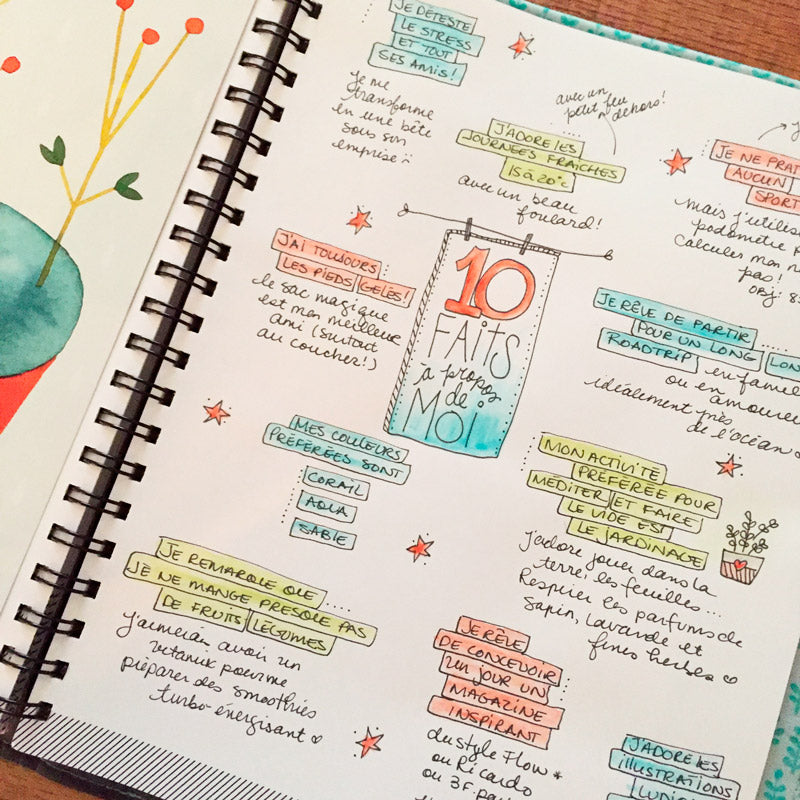 JE DÉTESTE
LE STRESS
ET TOUT
SES AMIS!
je me
transforme
en une bête
sous son
emprise
avec un
petit feu
dehors!
J'ADORE LES
JOURNÉES FRAÎCHES
15 à 20°C
avec un beau
foulard!
JE NE PRAT
AUCUN
SPORT
mais j'utilis
podomètre p
calculer mon n
pas!
OBJ: 8
J'AI TOUJOURS
LES PIEDS GELÉS!
le sac magique
est mon meilleur
ami (surtout
au coucher!)
10
FAITS
à propos
de
MOI
JE RÊLE DE PARTIR
POUR UN LONG LON
ROADTRIP en famil
ou en amoureu
idéalement près
de l'océan
MES COULEURS
PRÉFÉRÉES SONT
CORAIL
AQUA
SABLE
MON ACTIVITÉ
PRÉFÉRÉE POUR
MÉDITER ET FAIRE
LE VIDE EST
LE JARDINAGE
j'adore jouer dans la
terre, les feuilles...
Respirer les parfums de
sapin, lavande et
fines herbes
JE REMARQUE QUE
JE NE MANGE PRESQUE PAS
DE FRUITS LÉGUMES
j'aimerais avoir un
vitamix pour me
préparer des smoothies
turbo-énergisant
JE RÊLE
DE CONCEVOIR
UN JOUR UN
MAGAZINE
INSPIRANT
du style Flow *
ou Ricardo
ou 3F. pa
J'ADORE LES
ILLUSTRATIONS
LUDI